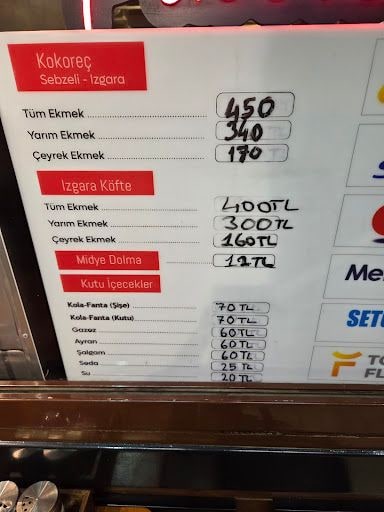 Kokoreç
Sebzeli - Izgara
Tüm Ekmek 450
Yarım Ekmek 340
Çeyrek Ekmek 170
Izgara Köfte
Tüm Ekmek 400TL
Yarım Ekmek 300TL
Çeyrek Ekmek 160TL
Midye Dolma 12TL
Kutu İçecekler
Kola-Fanta (Şişe) 70 TL
Kola-Fanta (Kutu) 70 TL
Gazoz 60TL
Ayran 60TL
Şalgam 60TL
Soda 25 TL
Su 20 TL
SETC
FL